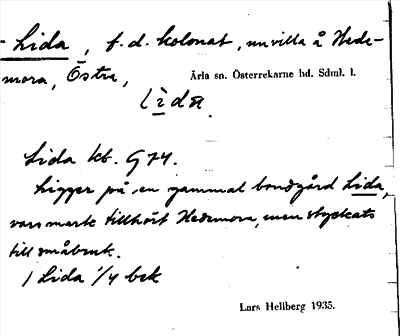 - Lida, f. d. kolonat, nu villa å Hede-
mora, Östra,
Ärla sn. Österrekarne hd. Sdml. l.
lìda.
Lida kb. G 74.
Ligger på en gammal bondgård Lida,
vars mark tillhört Hedemora, men styckats
till småbruk.
1 Lida 1/4 bek
Lars Hellberg 1935.